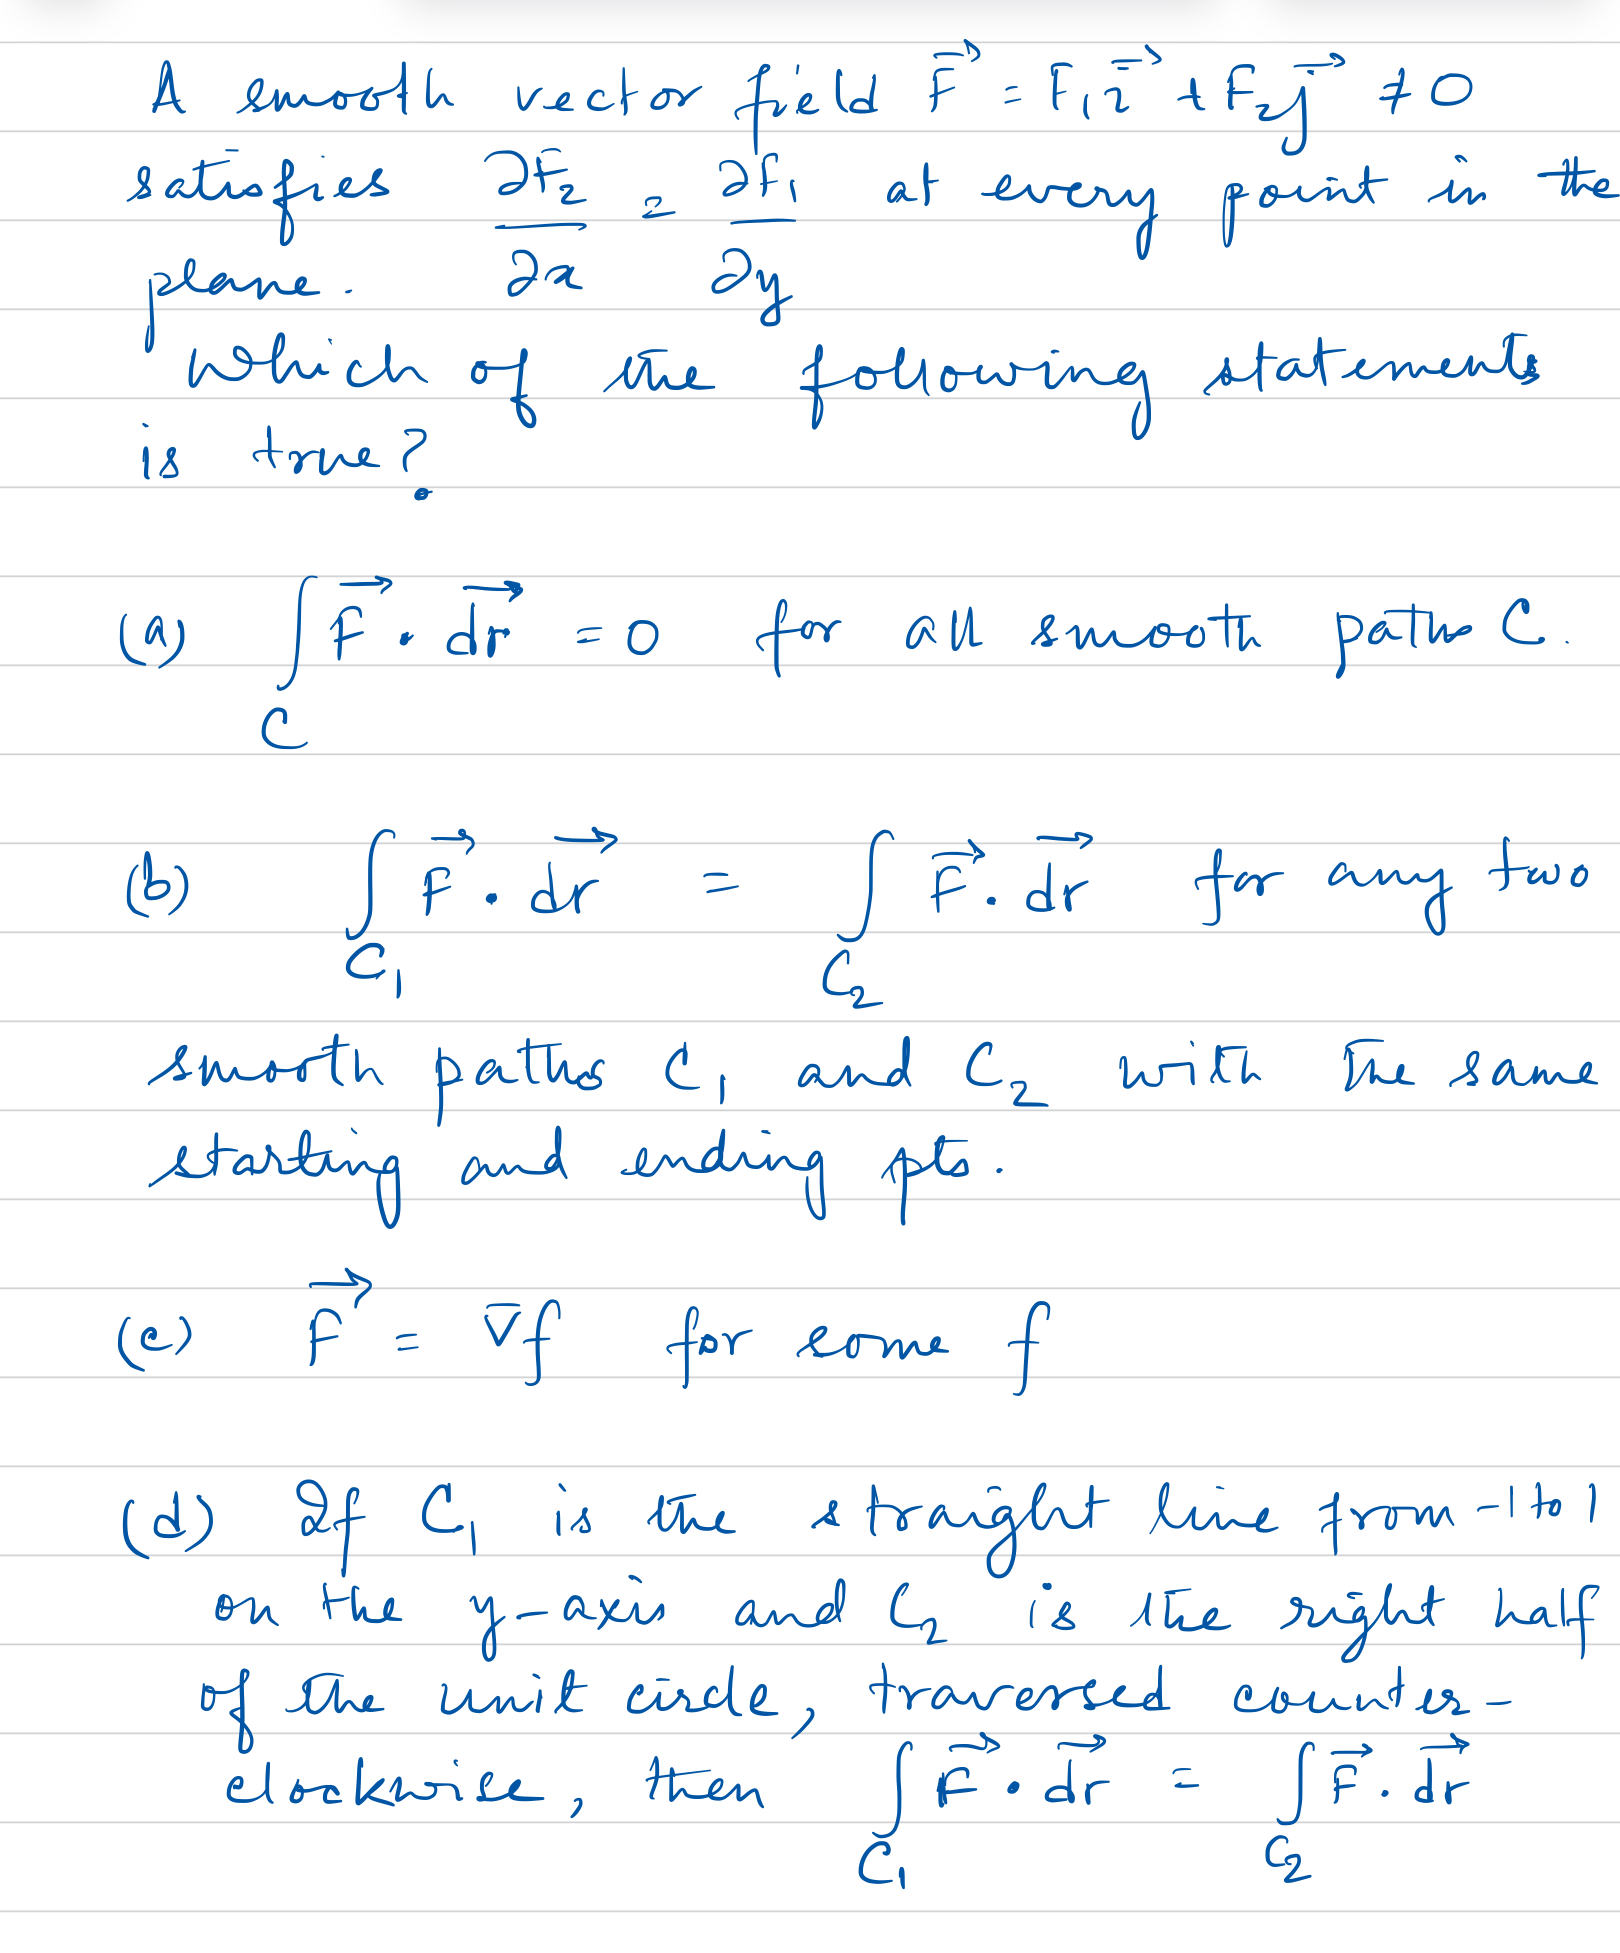 A smooth vector field F⃗ = F₁ i⃗ + F₂ j⃗ ≠ 0
satisfies ∂F₂/∂x = ∂F₁/∂y at every point in the
plane.
Which of the following statements
is true?
(a) ∫_C F⃗ · dr⃗ = 0 for all smooth paths C.
(b) ∫_C₁ F⃗ · dr⃗ = ∫_C₂ F⃗ · dr⃗ for any two
smooth paths C₁ and C₂ with the same
starting and ending pts.
(c) F⃗ = ∇f for some f
(d) If C₁ is the straight line from -1 to 1
on the y-axis and C₂ is the right half
of the unit circle, traversed counter-
clockwise, then ∫_C₁ F⃗ · dr⃗ = ∫_C₂ F⃗ · dr⃗